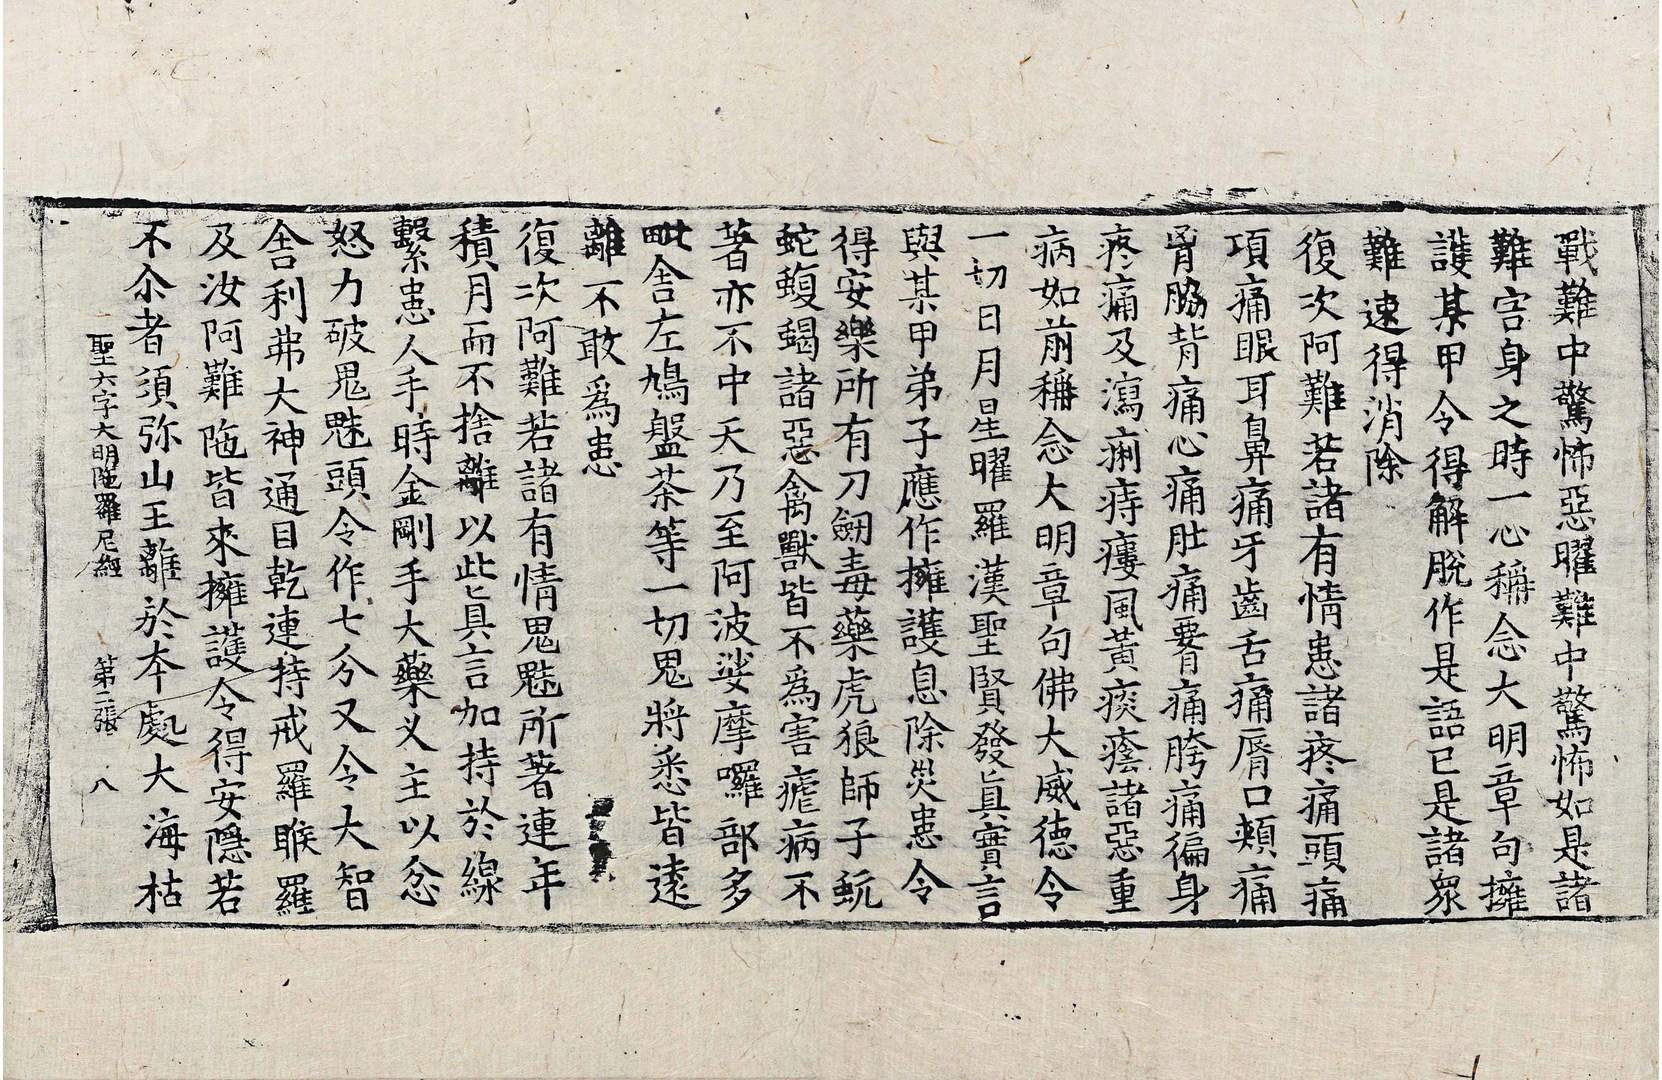 戰難中驚怖惡曜難中驚怖如是諸
難害身之時一心稱念大明章句擁
護某甲令得解脫作是語已是諸衆
難速得消除
復次阿難若諸有情患諸疼痛頭痛
項痛眼耳鼻痛牙齒舌痛脣口頰痛
胷脇背痛心痛肚痛要痛胯痛徧身
疼痛及瀉痢痔瘻風黃痰癊諸惡重
病如前稱念大明章句佛大威德令
一切日月星曜羅漢聖賢發眞實言
與某甲弟子應作擁護息除災患令
得安樂所有刀劒毒藥虎狼師子蚖
蛇蝮蝎諸惡禽獸皆不爲害瘧病不
著亦不中夭乃至阿波娑摩囉部多
毗舍左鳩盤茶等一切鬼將悉皆遠
離不敢爲患
復次阿難若諸有情鬼魅所著連年
積月而不捨離以此眞言加持於線
繫患人手時金剛手大藥叉主以忿
怒力破鬼魅頭令作七分又令大智
舍利弗大神通目乾連持戒羅睺羅
及汝阿難陁皆來擁護令得安隱若
不尒者須弥山王離於本處大海枯
聖六字大明陁羅尼經 第二張 八